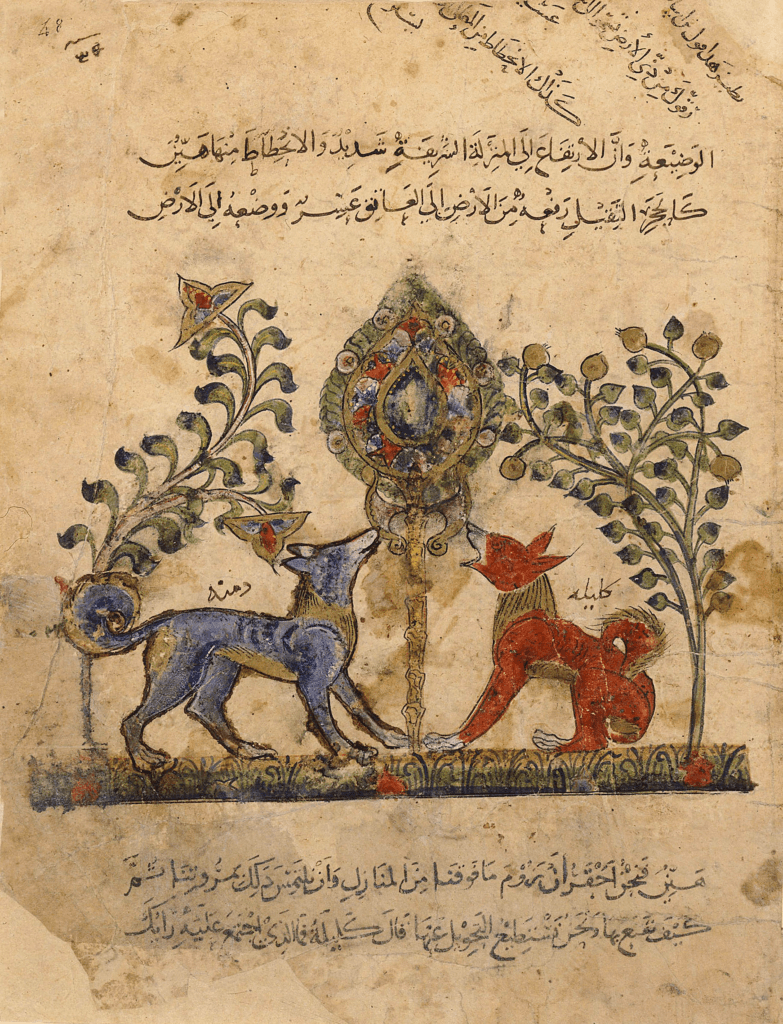 كذلك الانحطاط من
الوَضِيْعَةِ وَانَّ الارتفَاعَ اِلَى المَنزِلَةِ الشَّرِيفَةِ شَدِيدٌ وَالانْحِطَاطَ مِنْهَا هَيِّنٌ
كَالحَجَرِ الثَّقِيْلِ رَفْعُهُ مِنَ الاَرْضِ اِلَى العَاتِقِ عَسِرٌ وَوَضْعُهُ اِلَى الاَرْضِ
دمنه
كليله
هَيِّنٌ فَنَحْنُ اَحَقُّ اَنْ نَرُوْمَ مَا فَوْقَنَا مِنَ المَنَازِلِ وَاَنْ نَلْتَمِسَ ذَلِكَ بِمُرُوَّتِنَا ثُمَّ
كَيْفَ نَقْنَعُ بِهَا وَنَحْنُ نَسْتَطِيْعُ التَّحْوِيْلَ عَنْهَا قَالَ كَلِيْلَةُ فَمَا الَّذِيْ اجْتَمَعَ عَلَيْهِ رَايُكَ